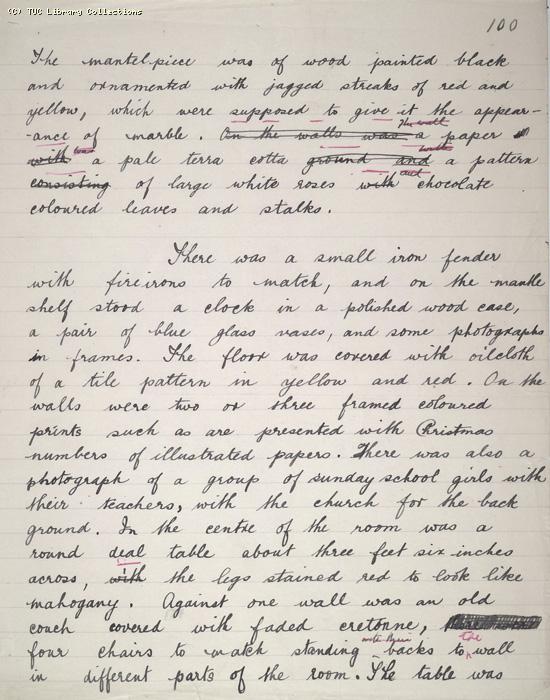 (C) TUC Library Collections
100
The mantel-piece was of wood painted black
and ornamented with jagged streaks of red and
yellow, which were supposed to give it the appear-
-ance of marble. On the walls was a paper
with a pale terra cotta ground and a pattern
consisting of large white roses with chocolate
coloured leaves and stalks.
There was a small iron fender
with fireirons to match, and on the mantle
shelf stood a clock in a polished wood case,
a pair of blue glass vases, and some photographs
in frames. The floor was covered with oilcloth
of a tile pattern in yellow and red. On the
walls were two or three framed coloured
prints such as are presented with Christmas
numbers of illustrated papers. There was also a
photograph of a group of sunday school girls with
their teachers, with the church for the back
ground. In the centre of the room was a
round deal table about three feet six inches
across, with the legs stained red to look like
mahogany. Against one wall was an old
couch covered with faded cretonne,
four chairs to match standing with their backs to the wall
in different parts of the room. The table was